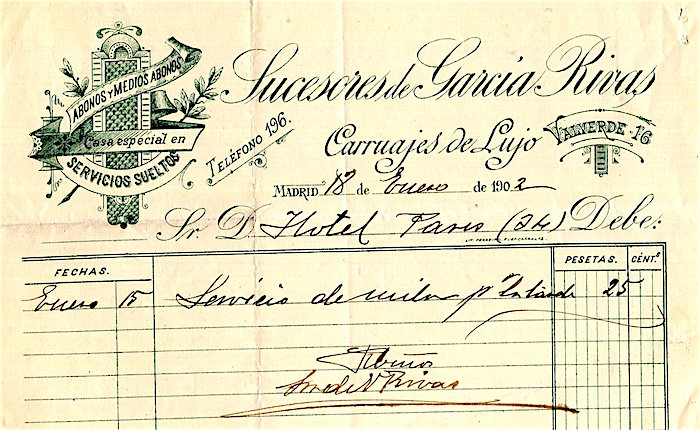 ABONOS Y MEDIOS ABONOS
Casa especial en
SERVICIOS SUELTOS
TELÉFONO 196.
Sucesores de García Rivas
Carruajes de Lujo
VALVERDE-16
MADRID 18 de Enero de 1902
Sr. D. Hotel Paris (24) Debe:
FECHAS. PESETAS. CÉNT.s
Enero 15 Servicio de milor pr la tarde 25
Rivas